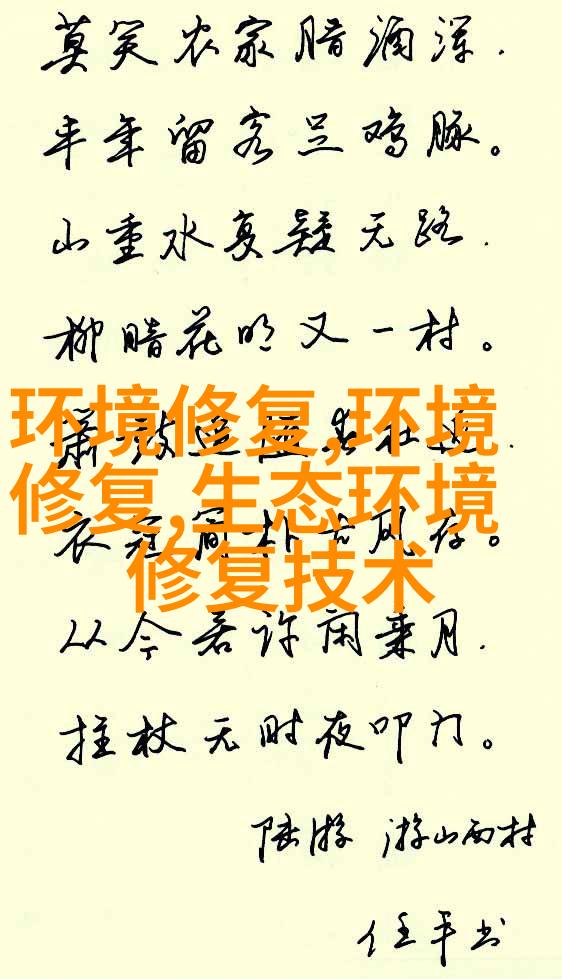 莫笑农家腊酒浑.
丰年留客足鸡豚。
山重水复疑无路.
柳暗花明又一村。
环境修复,环境
箫鼓追随春社近.
修复,生态环境
衣冠简朴古风存。
修复技术
从今若许闲乘月.
拄杖无时夜叩门。
陆游 游山西村
任平书